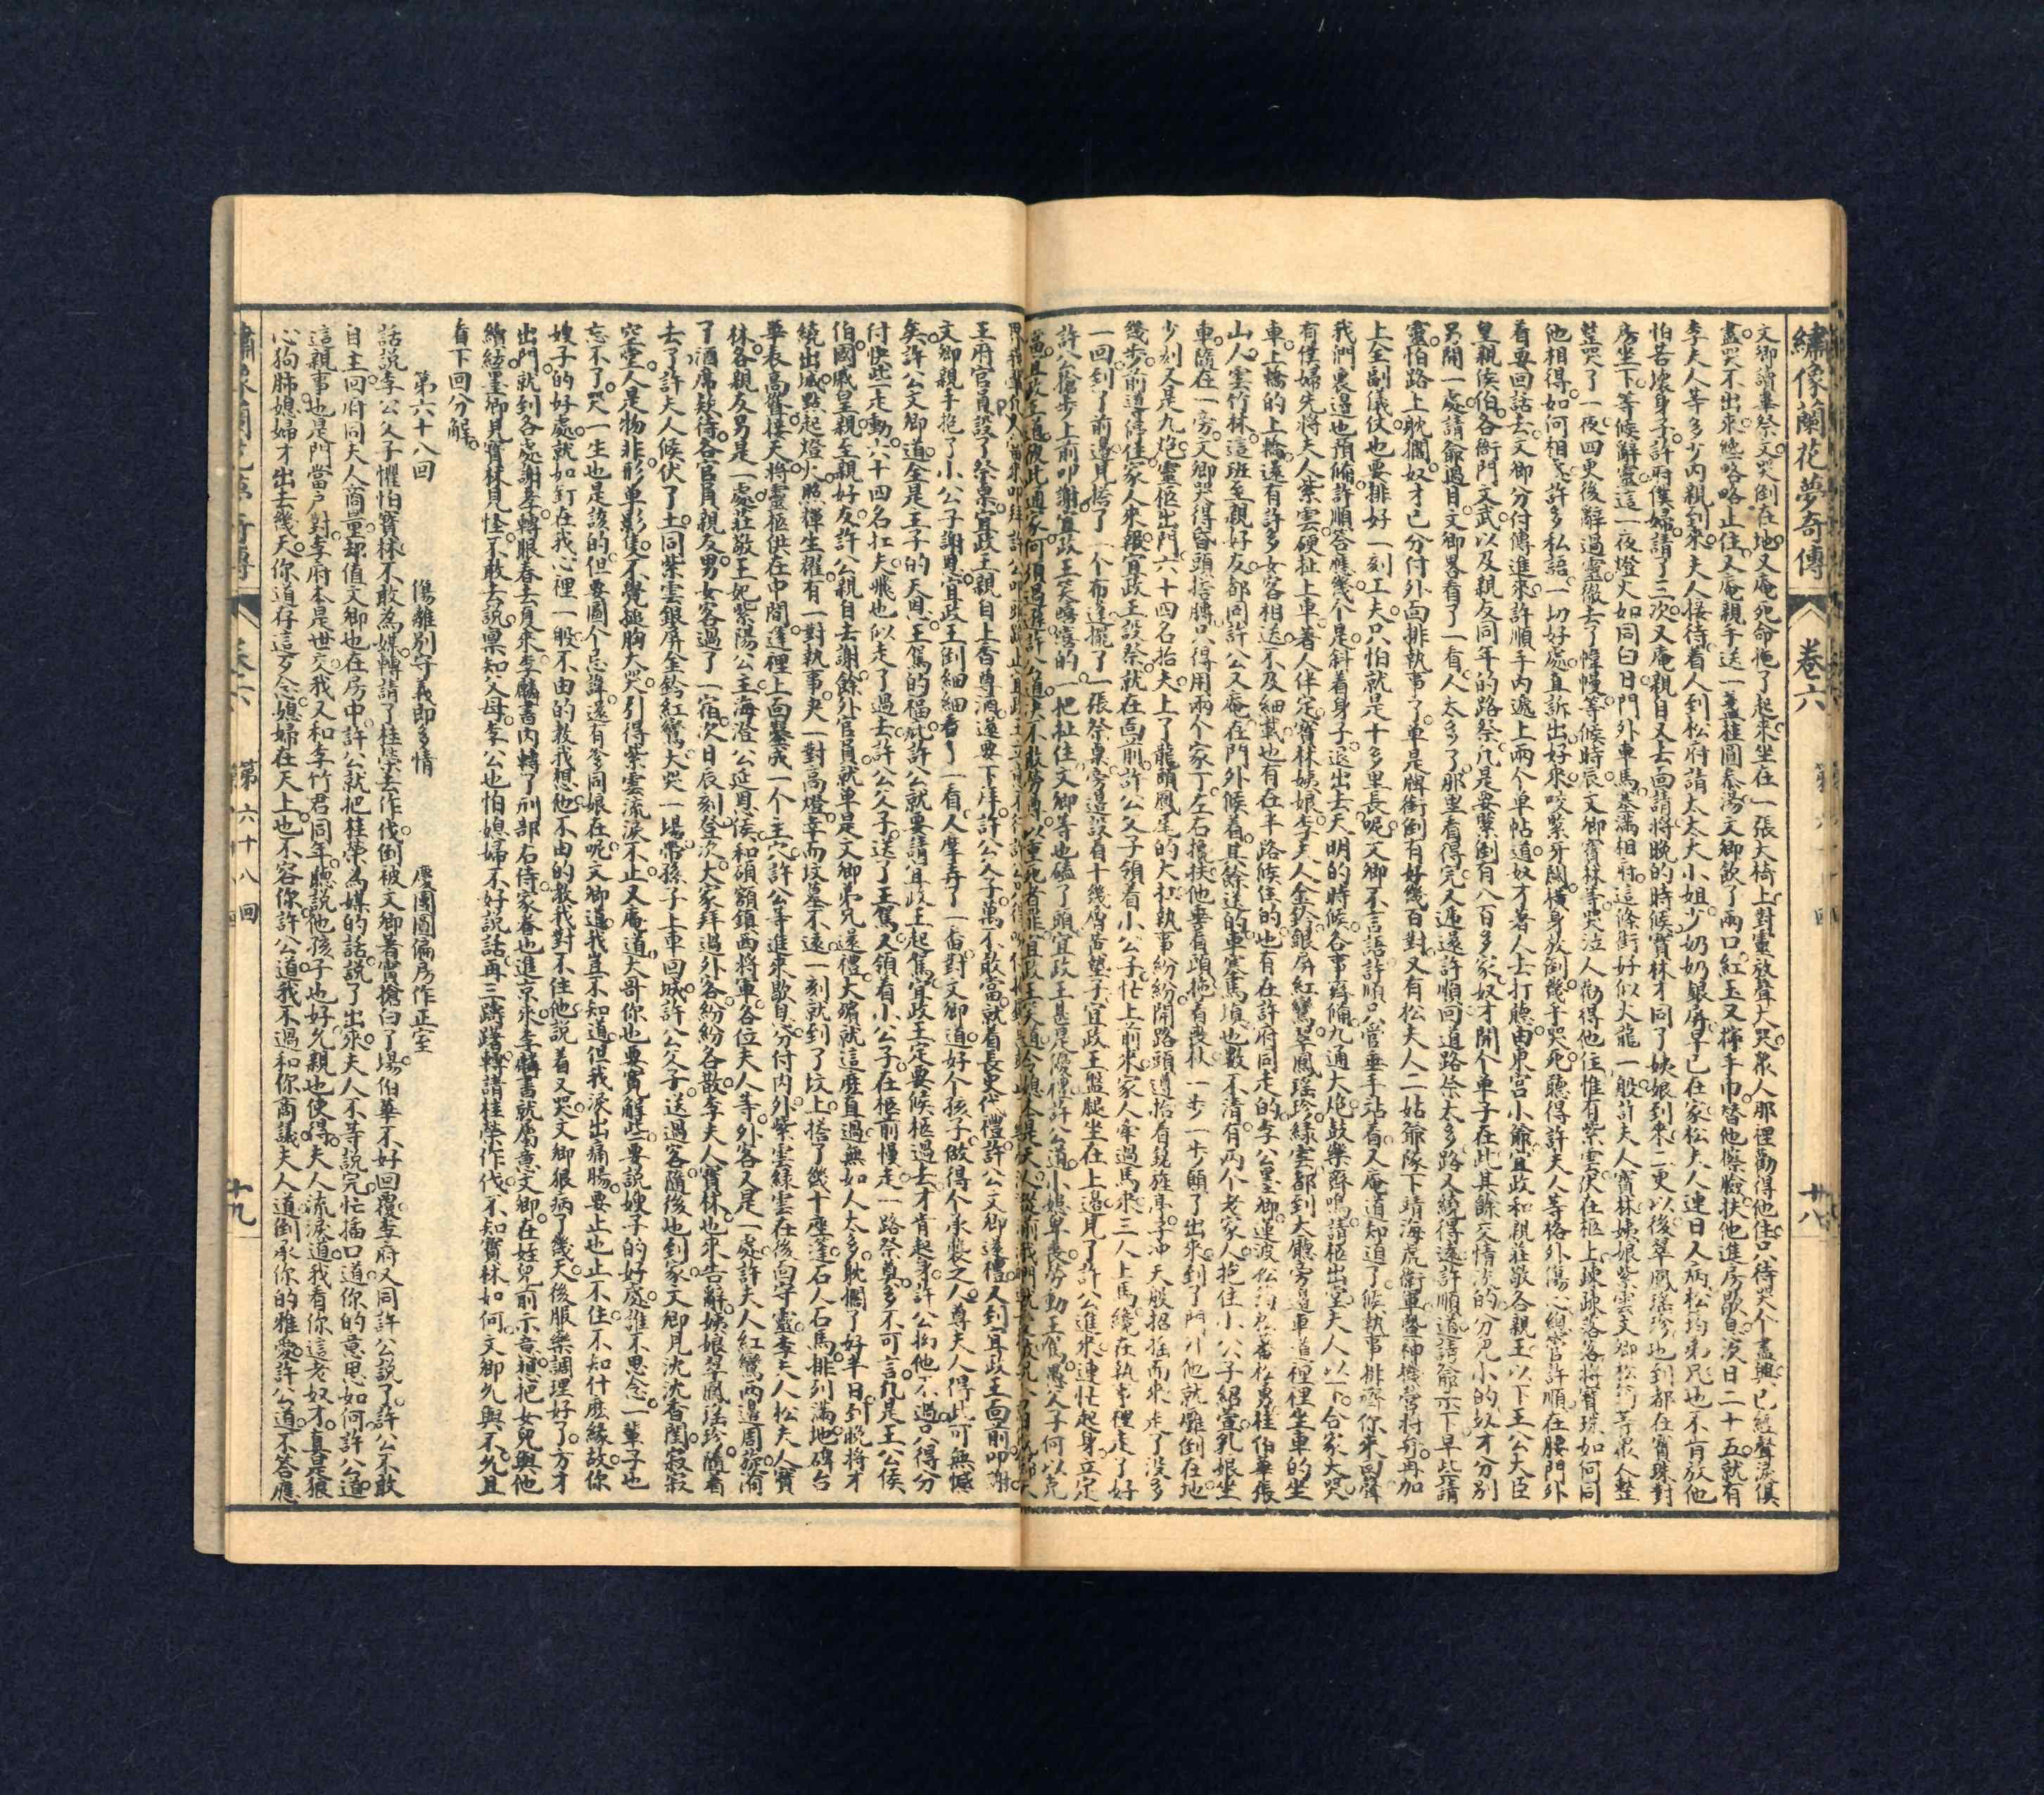 繡像蘭花夢奇傳
卷六
十八
文卿讀畢祭文哭倒在地又庵死命拖了起來坐在一張大椅上對靈放聲大哭衆人那裡勸得他住只待哭个盡興已經聲淚俱
盡哭不出來纔略略止住又庵親手送一盞桂圓参湯文卿飲了兩口紅玉又擰手巾替他擦臉扶他進房歇息次日二十五就有
李夫人等多少内親到來夫人接待着人到松府請太太大小姐少奶奶銀屏早已在家松夫人連日人病松均弟兄也不肯放他
怕苦壞身子許府僕婦請了三次又庵親自又去面請將晚的時候寶林才同了姨娘到來二更以後翠鳳瑤珍也到都在寶珠對
房坐下等候辭靈這一夜燈火如同白日門外車馬塞滿相府這條街好似火龍一般許夫人寶林姨娘紫雲文卿松筠等衆人整
整哭了一夜四更後辭過靈徹去了幃幔等候時辰文卿寶林等哭泣人勸得他住惟有紫雲伏在柩上疎疎落落將寶珠如何同
他相得如何相底許多私語一切好處直訴出好來咬緊牙關橫身放倒幾乎哭死聽得許夫人等格外傷心總管許順在腰門外
着要回話去文卿分付傳進來許順手内遞上兩个單帖道奴才著人去打聽由東宮小爺宜政和親莊敬各親王以下王公大臣
皇親候伯各衙門文武以及親友同年的路祭凡是要緊倒有八百多家奴才開个單子在此其餘交情淡的分兒小的奴才分別
另開一處請爺過目文卿畧看了一看人太多了那里看得完人遞還許順回道路祭太多路又繞得遠許順道請爺示下早些請
靈怕路上耽擱奴才已分付外面排執事了單是牌銜倒有好幾百對又有松夫人二姑爺隊下靖海虎衛軍暨神機營將弁再加
上全副儀仗也要排好一刻工夫只怕就是十多里長呢文卿不言語許順只管垂手站着又庵道知道了候執事排齊你來回聲
我們裏邊也預備許順答應幾个是斜着身子退出去天明的時候各事齊備九通大炮鼓樂齊鳴請柩出堂夫人以下合家大哭
有僕婦先將夫人紫雲硬扯上車著人伴定寶林姨娘李夫人金鈴銀屏紅鸞翠鳳瑤珍綠雲都到大廳旁邊車道裡坐車的坐
車上轎的上轎還有許多女客相送不及細載也有在半路候住的也有在許府同走的李公墨卿蓮波松筠松蕃松勇桂伯華張
山人雲竹林這班至親好友都同許公又庵在門外候着其餘送的車塞馬填也數不清有兩个老家人抱住小公子紹萱乳娘坐
車隨在一旁文卿哭得昏頭搭腦只得用兩个家丁左右攙扶他垂着頭拖着喪杖一步一步顛了出來到了門外他就雕倒在地
少刻又是九炮靈柩出門六十四名抬夫上了龍頭鳳尾的大杠執事紛紛開路頭遭抬着銘旌亭子冲天般招搖而來走了没多
幾步前邊停住家人來報宜政王設祭就在面前許公父子領着小公子忙上前來家人牽過馬來三人上馬繞在執事裡走了好
一回到了前邊見搭了一个布篷擺了一張祭桌旁邊設有十幾層蓆墊子宜政王盤腿坐在上邊見了許公進來連忙起身立定
許公搶步上前叩謝宜政王笑嘻嘻的一把扯住文卿等也磕了頭宜政王甚是優禮許公道小媳卑喪勞動王駕愚父子何以克
王府官員設了祭桌宜政王親自上香尊酒還要下拜許公父子萬不敢當就着長史代禮許公文卿還禮又到宜政王面前叩謝
文卿親手抱了小公子謝恩宜政王倒細細看了一看又摩弄了一番對文卿道好个孩子做得个承裝之人尊夫人得此可無憾
矣許公文卿道全是王子的天恩王駕的福庇許公就要請宜政王起駕宜政王定要候柩過去才肯起身許公拗他不過只得分
付快些走動六十四名扛夫飛也似走了過去許公父子送了王駕又領着小公子在柩前慢走一路祭尊多不可言凡是王公侯
伯國戚皇親至親好友許公親自去謝餘外官員就單是文卿弟兄還禮大殯就這麼直過無如人太多耽擱了好半日到晚將才
繞出城點起燈火照樣生耀有一對執事夾一對高燈幸而墳墓不遠一刻就到了坟上搭了幾十座篷石人石馬排列滿地碑台
華表高聳接天將靈柩供在中間篷裡上面鑿成一个主穴許公等進來歇息分付内外紫雲綠雲在後面守靈李夫人松夫人寶
林各親友男是一處莊敬王妃紫陽公主海澄公延恩侯和碩額鎮西將軍各位夫人等外客又是一處許夫人紅鸞兩邊周旋備
了酒席欵待各官員親友男女客過了一宿次日辰刻登次大家拜過外客紛紛各散李夫人寶林也來告辭姨娘翠鳳瑤珍隨着
去了許夫人候伏了土同紫雲銀屏金鈴紅鸞大哭一場帶孫子上車回城許公父子送過客隨後也到家文卿見沈沈香閨寂寂
空堂人是物非形单影隻不覺搥胸大哭引得紫雲流淚不止又庵道大哥你也要寬解些要說嫂子的好處誰不思念一輩子也
忘不了哭一生也是該的但要圖个忌諱還有爹同娘在呢文卿道我豈不知道但我淚出痛腸要止也止不住不知什麼緣故你
嫂子的好處就如釘在我心裡一般不由的教我想他不由的教我對不住他說着又哭文卿狠病了幾天後服藥調理好了方才
出門就到各處謝孝轉眼春去夏來李麟書内轉了刑部右侍家眷也進京來李麟書就屬意文卿在姪兒前示意想把女兒與他
續絃墨卿見寶林見怪不敢去說禀知父母李公也怕媳婦不好說話再三躊躇轉請桂榮作伐不知寶林如何文卿允與不允且
看下回分解
第六十八回　傷離別守義即多情　慶團圓偏房作正室
話說李公父子懼怕寶林不敢為媒轉請了桂榮去作伐倒被文卿著實搶白了場伯華不好回覆李府又同許公說了許公不敢
自主回府同夫人商量却值文卿也在房中許公就把桂榮為媒的話說了出來夫人不等說完忙插口道你的意思如何許公道
這親事也是門當户對李府本是世交我又和李竹君同年聽說他孩子也好允親也使得夫人流淚道我看你這老奴才真是狼
心狗肺媳婦才出去幾天你道存這歹念媳婦在天上也不容你許公道我不過和你商議夫人道倒承你的雅愛許公道不答應
卷六
第六十八回
十九